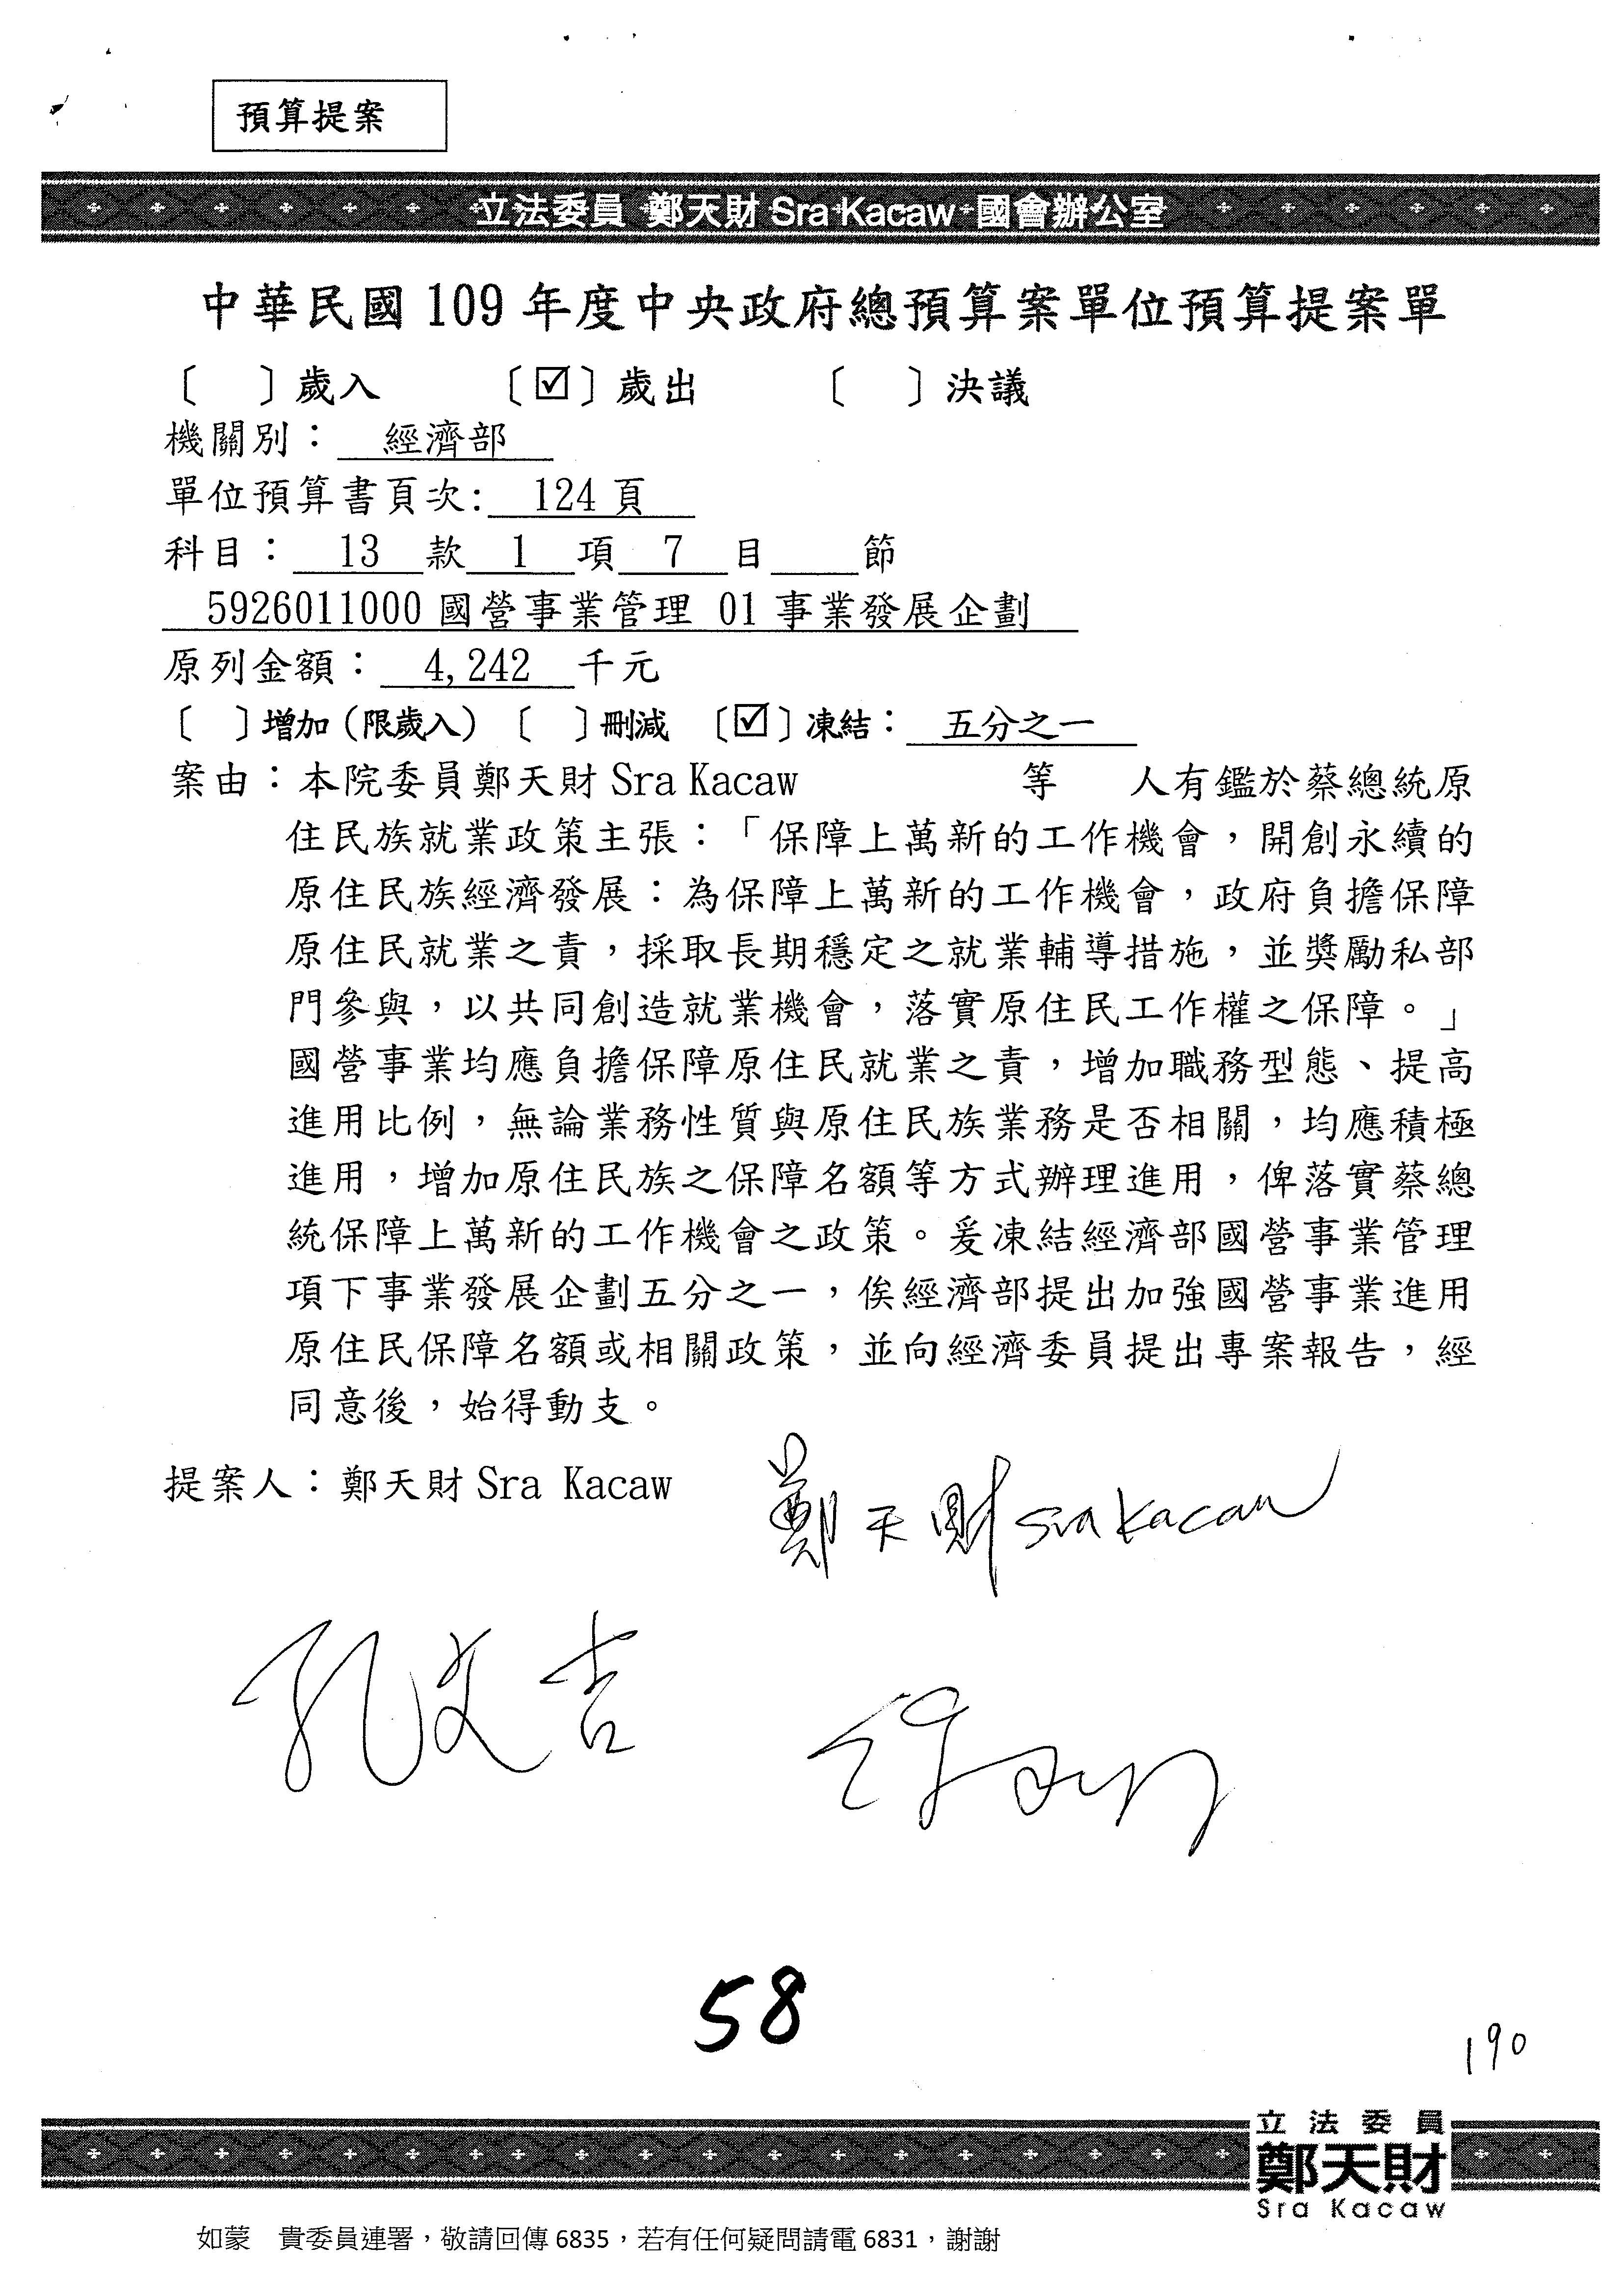 預算提案
立法委員 鄭天財 Sra Kacaw 國會辦公室
中華民國 109 年度中央政府總預算案單位預算提案單
〔　〕歲入　〔☑〕歲出　〔　〕決議
機關別：經濟部
單位預算書頁次: 124 頁
科目： 13 款 1 項 7 目 節
5926011000 國營事業管理 01 事業發展企劃
原列金額： 4,242 千元
〔　〕增加（限歲入）〔　〕刪減 〔☑〕凍結： 五分之一
案由：本院委員鄭天財 Sra Kacaw 等 人有鑑於蔡總統原
住民族就業政策主張：「保障上萬新的工作機會，開創永續的
原住民族經濟發展：為保障上萬新的工作機會，政府負擔保障
原住民就業之責，採取長期穩定之就業輔導措施，並獎勵私部
門參與，以共同創造就業機會，落實原住民工作權之保障。」
國營事業均應負擔保障原住民就業之責，增加職務型態、提高
進用比例，無論業務性質與原住民族業務是否相關，均應積極
進用，增加原住民族之保障名額等方式辦理進用，俾落實蔡總
統保障上萬新的工作機會之政策。爰凍結經濟部國營事業管理
項下事業發展企劃五分之一，俟經濟部提出加強國營事業進用
原住民保障名額或相關政策，並向經濟委員提出專案報告，經
同意後，始得動支。
提案人：鄭天財 Sra Kacaw
鄭天財 Sra Kacaw
孔文吉
58
190
立法委員
鄭天財
Sra Kacaw
如蒙　貴委員連署，敬請回傳 6835，若有任何疑問請電 6831，謝謝